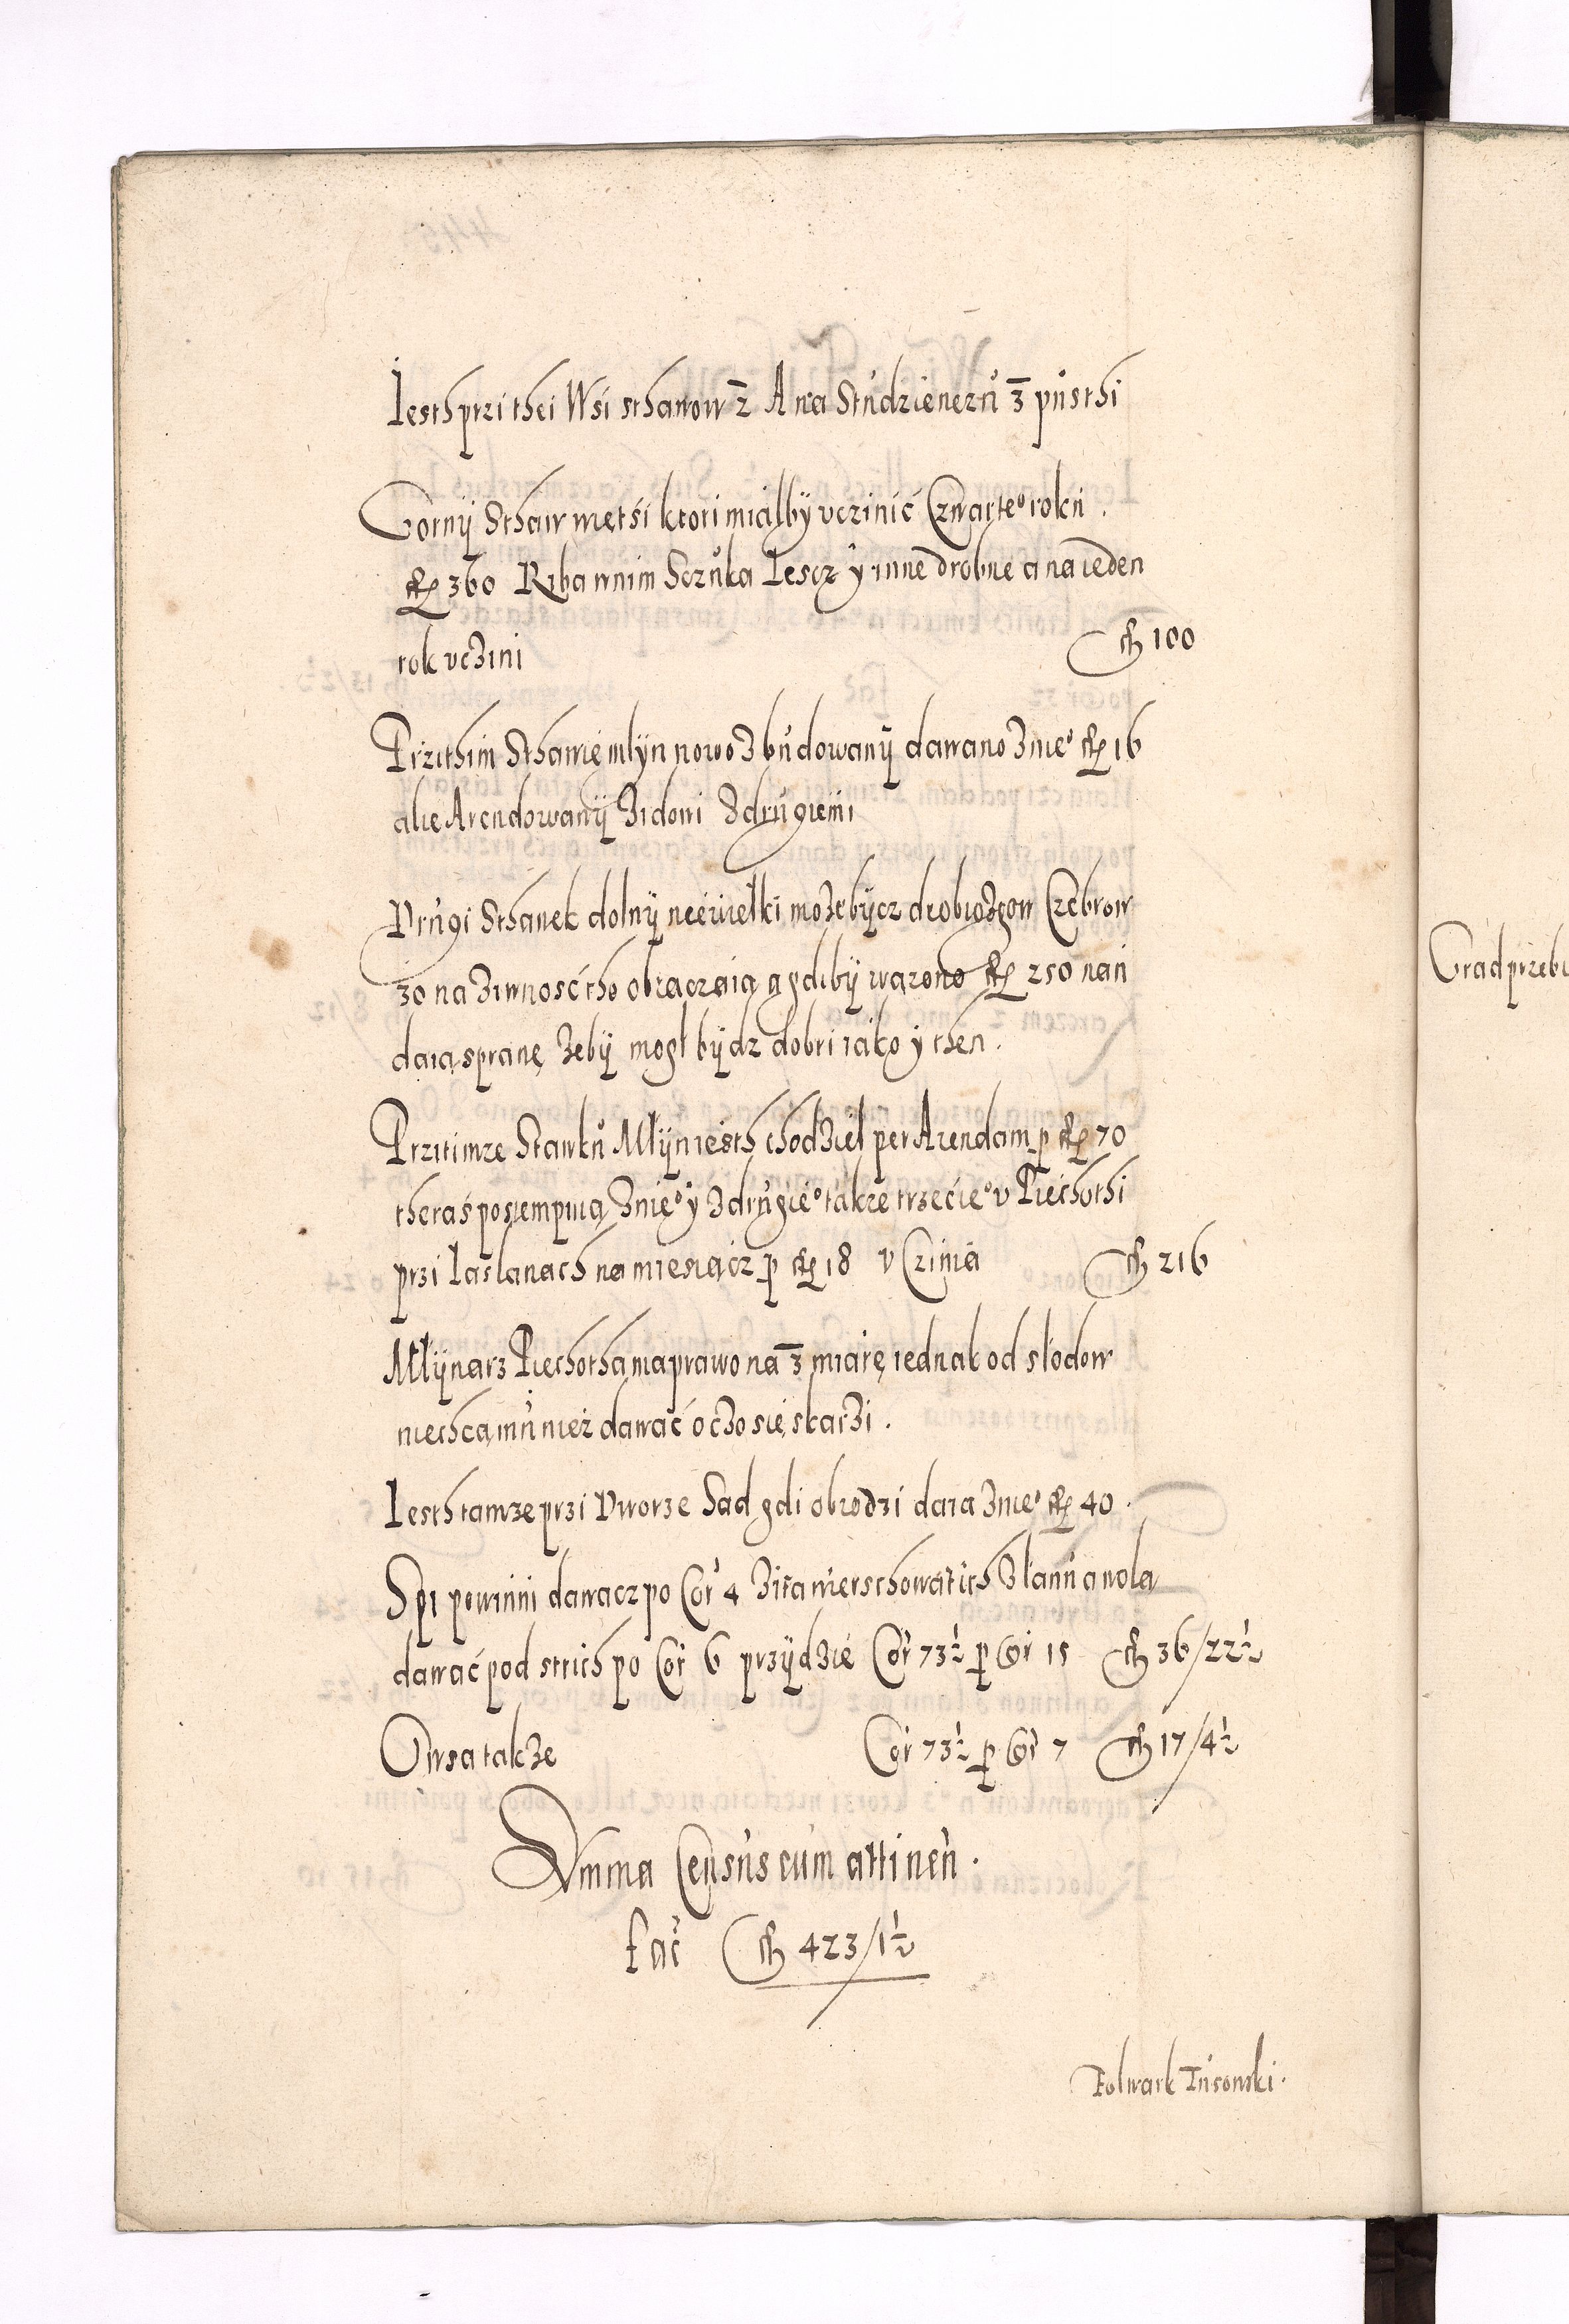 Iesth przi thei Wsi sthawow 2 A na Studzienczu 3 pusthi
Gornij Sthaw wetsi ktori mialbij vczinić Czwarte⁰ roku.
fl 360 Riba w nim Sczuka Lescz ÿ inne drobne a na ieden
rok vczini M 100
Przithim Sthawię mlijn nowo zbudowanij dawano z nie⁰ fl 16
alie Arendowanij Zidowi Z drugiemi
Drugi Sthawek dolnij niewielki może bijcz drobiozgow Czebrow
30 na ziwnosć tho obraczaią a gdibij ważono fl 250 nań
daią sprawę żebij mogł bijdz dobri iako ÿ then.
Przitimze Stawku Mlijn iesth chodziel per Arendam p fl 70
theraś postempuią z nie⁰ ÿ z drugie⁰ także trzecie⁰ v Piechothi
przi Iaslanach na miesiącz p fl 18 v Czinia M 216
Mlijnarz Piechotha ma prawo na 3 miarę iednak od slodow
niechcą mu niez dawać o czo się skarzi.
Iesth tamze przi Dworze Sad gdi obrodzi daią z nie⁰ fl 40.
Spi powinni dawacz po Cor 4 zita wierschowatich z lanu a wolą
dawać pod strich po Cor 6 przijdzie Cor 73½ p Gr 15 M 36/22½
Owsa także Cor 73½ p Gr 7 M 17/4½
Summa Census cum attinen.
fac M 423/1½
Folwark Tusowski.
Grad przebi